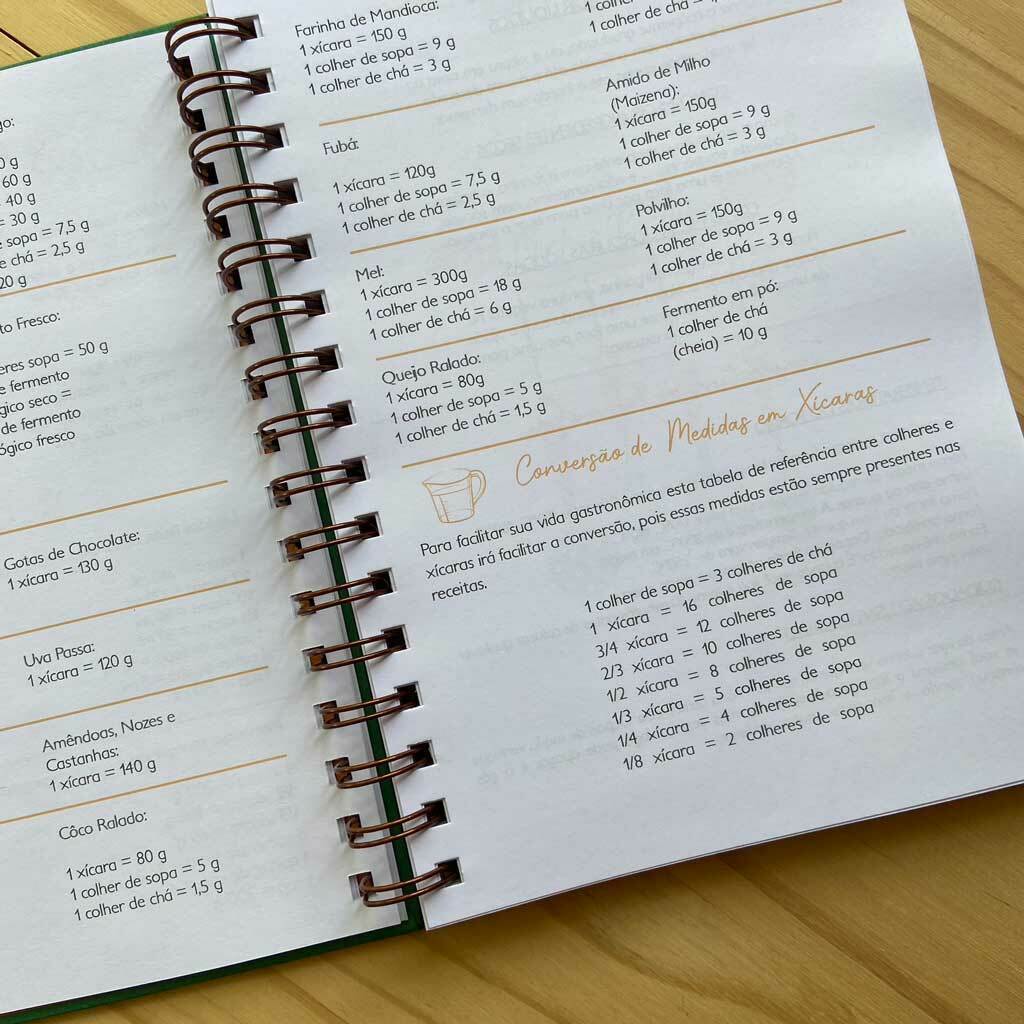 go:
0 g
60 g
40 g
= 30 g
sopa = 7,5 g
chá = 2,5 g
20 g
to Fresco:
eres sopa = 50 g
e fermento
gico seco =
de fermento
ógico fresco
Gotas de Chocolate:
1 xícara = 130 g
Uva Passa:
1 xícara = 120 g
Amêndoas, Nozes e
Castanhas:
1 xícara = 140 g
Côco Ralado:
1 xícara = 80 g
1 colher de sopa = 5 g
1 colher de chá = 1,5 g
Farinha de Mandioca:
1 xícara = 150 g
1 colher de sopa = 9 g
1 colher de chá = 3 g
1 colher de chá =
Fubá:
1 xícara = 120g
1 colher de sopa = 7,5 g
1 colher de chá = 2,5 g
Amido de Milho
(Maizena):
1 xícara = 150g
1 colher de sopa = 9 g
1 colher de chá = 3 g
Mel:
1 xícara = 300g
1 colher de sopa = 18 g
1 colher de chá = 6 g
Polvilho:
1 xícara = 150g
1 colher de sopa = 9 g
1 colher de chá = 3 g
Queijo Ralado:
1 xícara = 80g
1 colher de sopa = 5 g
1 colher de chá = 1,5 g
Fermento em pó:
1 colher de chá
(cheia) = 10 g
Conversão de Medidas em Xícaras
Para facilitar sua vida gastronômica esta tabela de referência entre colheres e
xícaras irá facilitar a conversão, pois essas medidas estão sempre presentes nas
receitas.
1 colher de sopa = 3 colheres de chá
1 xícara = 16 colheres de sopa
3/4 xícara = 12 colheres de sopa
2/3 xícara = 10 colheres de sopa
1/2 xícara = 8 colheres de sopa
1/3 xícara = 5 colheres de sopa
1/4 xícara = 4 colheres de sopa
1/8 xícara = 2 colheres de sopa